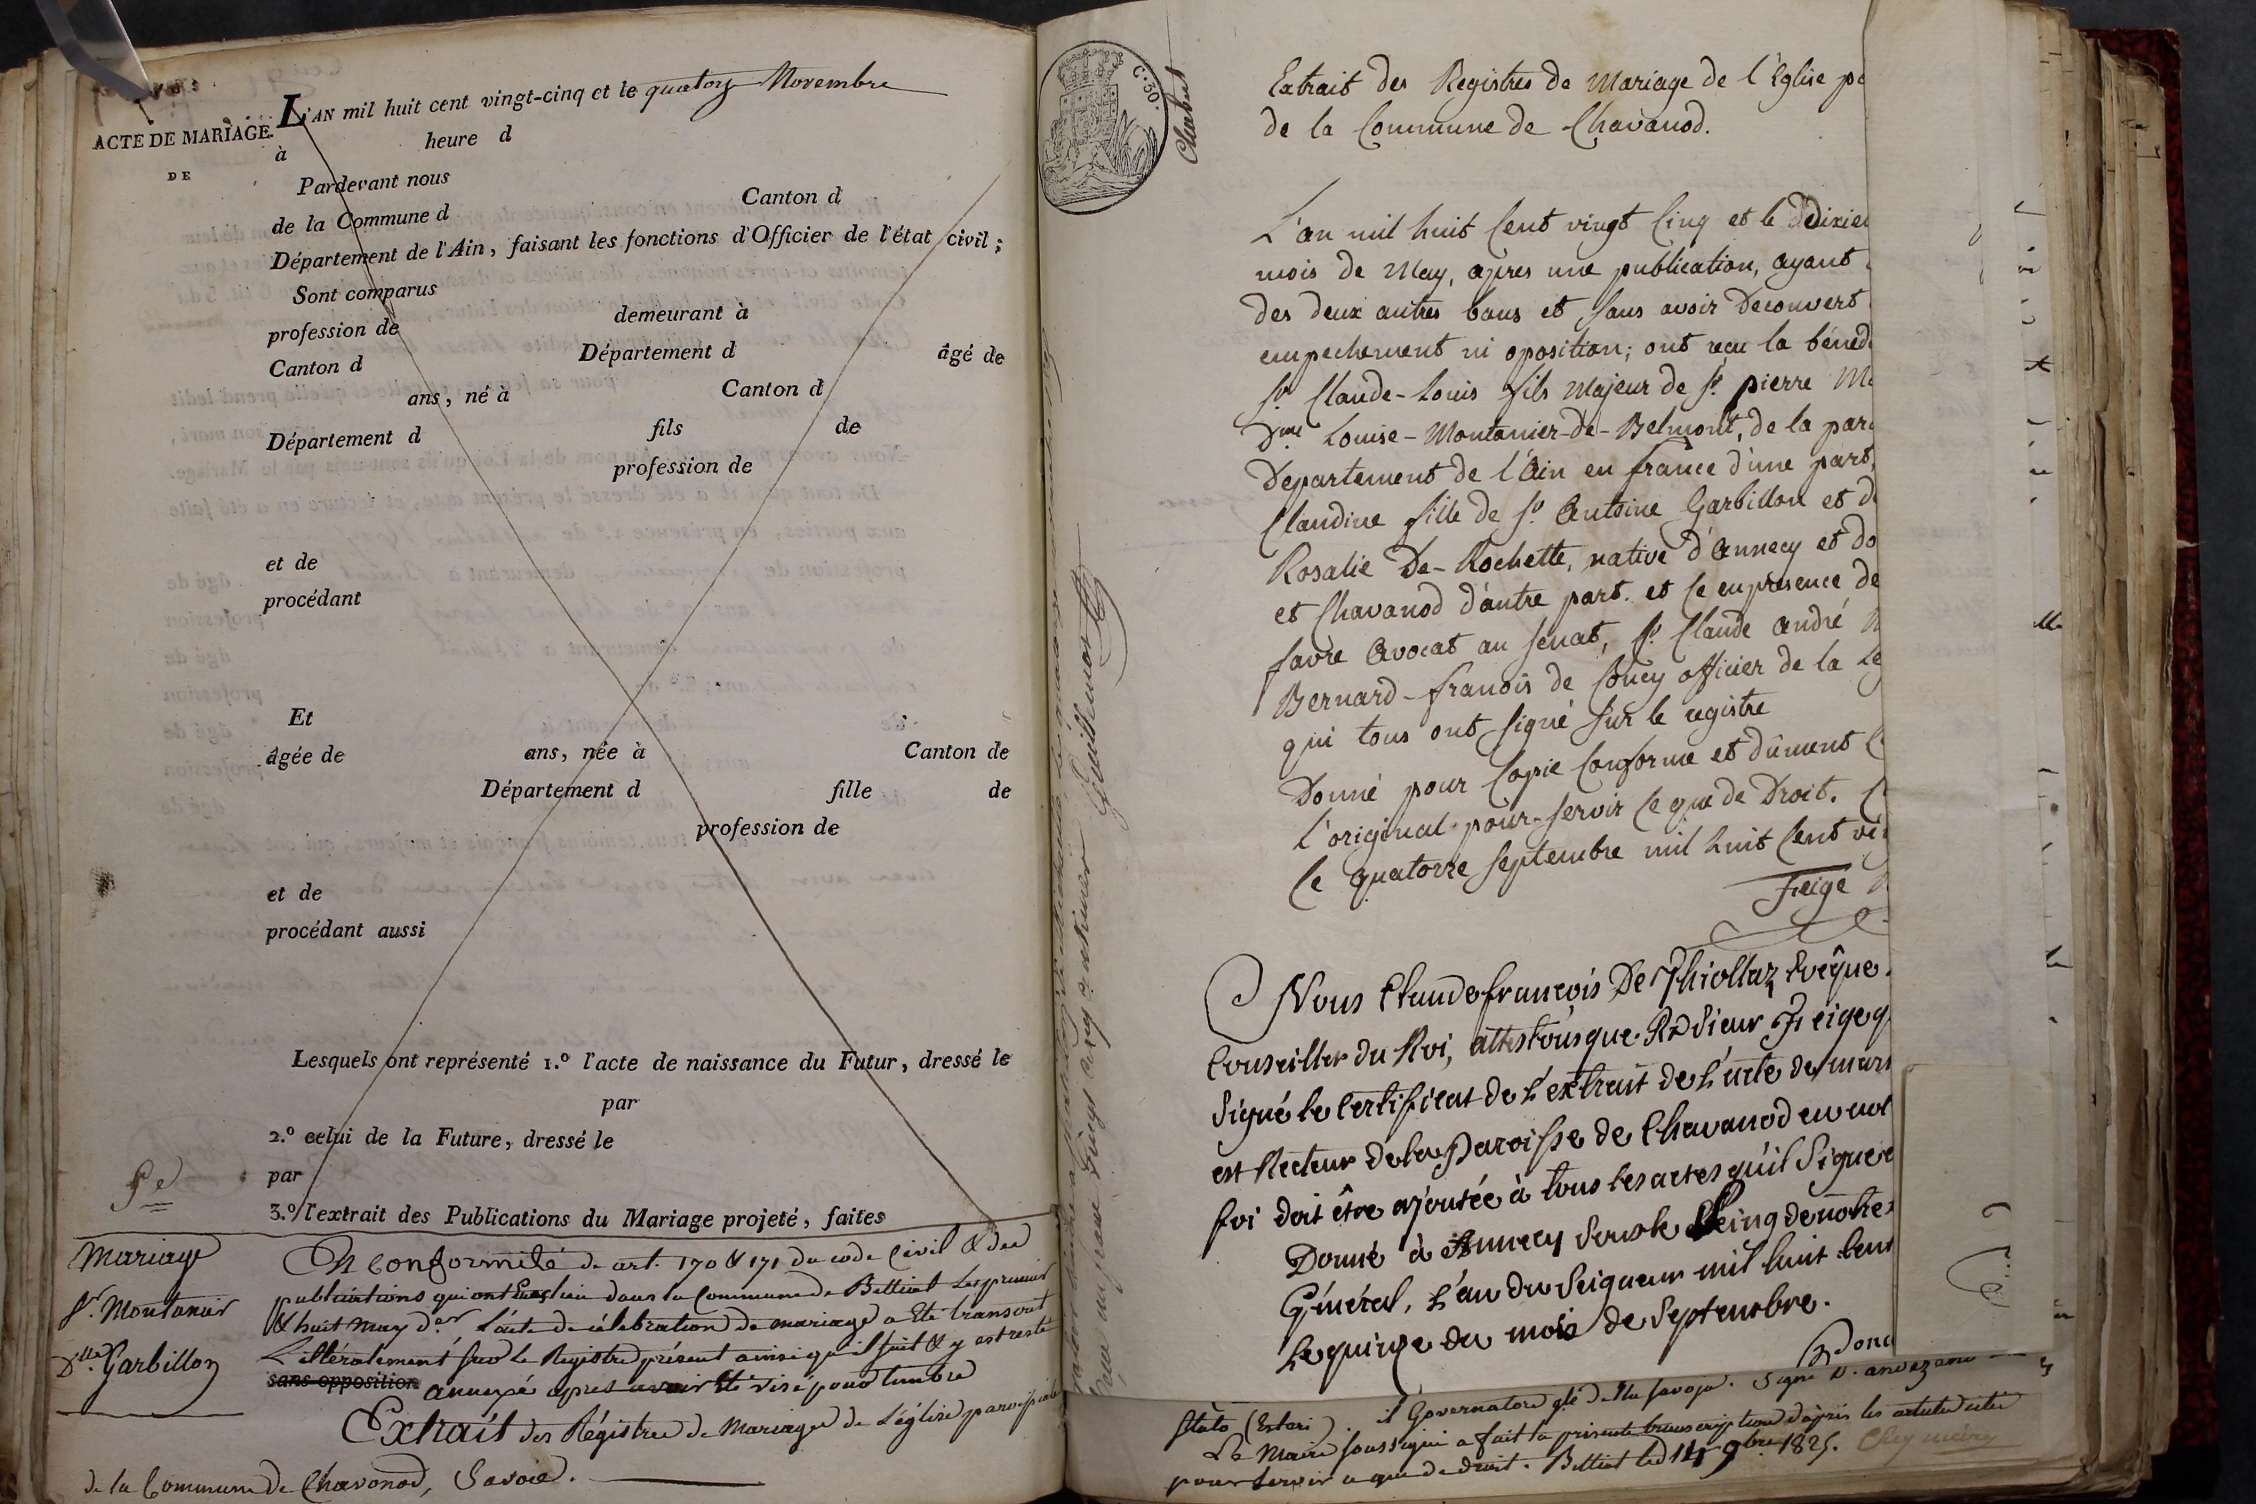 ACTE DE MARIAGE
DE
L'AN mil huit cent vingt-cinq et le quatorz Novembre
à heure d
Pardevant nous
de la Commune d Canton d
Département de l'Ain, faisant les fonctions d'Officier de l'état civil ;
Sont comparus
profession de demeurant à
Canton d Département d âgé de
ans, né à Canton d
Département d fils de
profession de
et de
procédant
Et
âgée de ans, née à Canton de
Département d fille de
profession de
et de
procédant aussi
Lesquels ont représenté 1.º l'acte de naissance du Futur, dressé le
par
2.º celui de la Future, dressé le
par
3.º l'extrait des Publications du Mariage projeté, faites
Mariage
Sr. Montanier
Dlle. Garbillon
En Conformité de art. 170 & 171 du code Civil & des
publications qui ont eu lieu dans la Commune de Billiat les premier
& huit may der. L'acte de célébration de mariage a été transcrit
Littéralement sur le Registre présent ainsi qu'il suit & y est resté
sans opposition annexé après avoir été visé pour timbre
Extrait des Régistres de Mariages de L'église paroissiale
de la Commune de Chavonod, Savoie.
C. 30.
vingt cinq
Guillemot
Extrait des Registres de Mariage de l'Eglise pa
de la Commune de Chavanod.
L'an mil huit Cent vingt Cinq et le dixiem
mois de May, après une publication, ayant
des deux autres bans et sans avoir Decouvert
empechement ni oposition; ont reçu la bénéd
Sr. Claude-Louis fils Majeur de Sr. pierre Mo
Dme Louise-Montanier-de-Belmont, de la par
Departement de l'Ain en france d'une part,
Claudine fille de Sr. Antoine Garbillon et d
Rosalie De-Rochette, native d'Annecy et do
et Chavanod d'autre part. et ce en présence de
favre Avocat au Senat, Sr. Claude André
Bernard-franois de Coucy officier de la Le
qui tous ont signé sur le registre
Donné pour Copie Conforme et dûment C
l'original pour servir ce que de Droit. C
Ce quatorze Septembre mil huit Cent vi
Feige
Nous Claude françois De Thiollaz Evêque
Conseiller du Roi, attestons que Rd Sieur Feige q
Signé le Certificat de L'extrait de L'acte de mari
est Recteur de la Paroisse de Chavanod en not
foi doit être ajoutée à tous les actes qu'il Signe e
Donné à Annecy sous le Seing de notre
Général, L'an du Seigneur mil huit Cent
Le quinze du mois de Septembre.
Stato (Esteri). il Governatore gle della Savoja. Signé D. andezeno
Le Maire soussigné a fait la présente transcription d'après les articles cités
pour servir ce que de droit. Billiat le 14 9bre 1825.